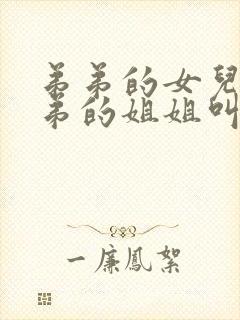 弟弟的女兒
弟的姐姐叫
一廉鳳絮